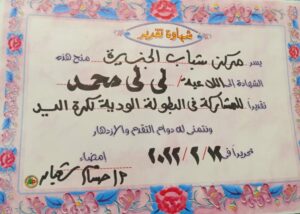 شهادة تقدير
يسر مركز شباب الجزيرة منح هذه
الشهادة إلى اللاعبة / لى لى محمد
تقديراً للمشاركة فى البطولة الودية لكرة اليد
ونتمنى له دوام التقدم والإزدهار
تحريراً فى / ٢ / ٢٠٢٢ إمضاء